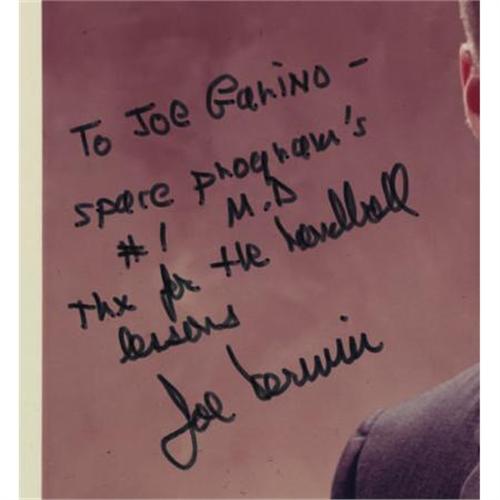 To Joe Garino -
space program's
#1 M.D
thx for the handball
lessons
Joe Kerwin